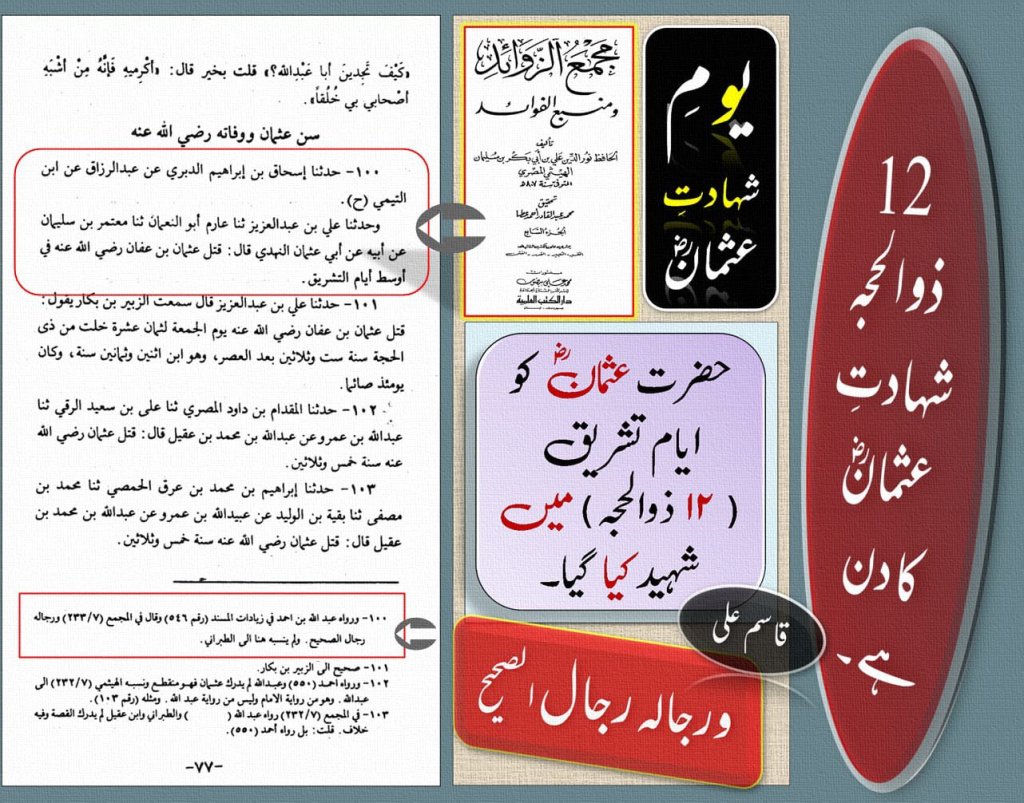 «كَيْفَ تَجِدينَ أبا عَبْدِالله؟» قلت بخير قال: «أكْرِميهِ فَإنَّهُ مِنْ أشْبَهِ
أصْحابي بي خُلُقاً».
سن عثمان ووفاته رضي الله عنه
١٠٠- حدثنا إسحاق بن إبراهيم الدبري عن عبدالرزاق عن ابن
التيمي (ح).
وحدثنا علي بن عبدالعزيز ثنا عارم أبو النعمان ثنا معتمر بن سليمان
عن أبيه عن أبي عثمان النهدي قال: قتل عثمان بن عفان رضي الله عنه في
أوسط أيام التشريق.
١٠١- حدثنا علي بن عبدالعزيز قال سمعت الزبير بن بكار يقول:
قتل عثمان بن عفان رضي الله عنه يوم الجمعة لثمان عشرة خلت من ذى
الحجة سنة ست وثلاثين بعد العصر، وهو ابن اثنين وثمانين سنة، وكان
يومئذ صائما.
١٠٢- حدثنا المقدام بن داود المصري ثنا على بن سعيد الرقي ثنا
عبدالله بن عمرو عن عبدالله بن محمد بن عقيل قال: قتل عثمان رضي الله
عنه سنة خمس وثلاثين.
١٠٣- حدثنا إبراهيم بن محمد بن عرق الحمصي ثنا محمد بن
مصفى ثنا بقية بن الوليد عن عبيدالله بن عمرو عن عبدالله بن محمد بن
عقيل قال: قتل عثمان رضي الله عنه سنة خمس وثلاثين.
١٠٠- ورواه عبد الله بن احمد في زيادات المسند (رقم ٥٤٦) وقال في المجمع (٢٣٣/٧) ورجاله
رجال الصحيح. ولم ينسبه هنا الى الطبراني.
١٠١- صحيح الى الزبير بن بكار.
١٠٢- ورواه احمد (٥٥٠) وعبدالله لم يدرك عثمان فهو منقطع ونسبه الهيثمي (٢٣٢/٧) الى
عبدالله. وهو من رواية الامام وليس من رواية عبد الله. ومثله (رقم ١٠٣).
١٠٣- في المجمع (٢٣٢/٧) رواه عبد الله ( ) والطبراني وابن عقيل لم يدرك القصة وفيه
خلاف. قلت: بل رواه أحمد (٥٥٠).
-٧٧-
مجمع الزوائد
ومنبع الفوائد
تأليف
الحافظ نور الدين علي بن أبي بكر بن سليمان
الهيثمي المصري
المتوفى سنة ٨٠٧ه
تحقيق
محمد عبد القادر أحمد عطا
الجزء السابع
منشورات
محمد علي بيضون
دار الكتب العلمية
یومِ
شہادتِ
عثمانؓ
حضرت عثمانؓ کو
ایام تشریق
(۱۲ ذوالحجہ) میں
شہید کیا گیا۔
قاسم علی
ورجاله رجال الصحيح
12
ذوالحجہ
شہادتِ
عثمانؓ
کا دن
ہے۔